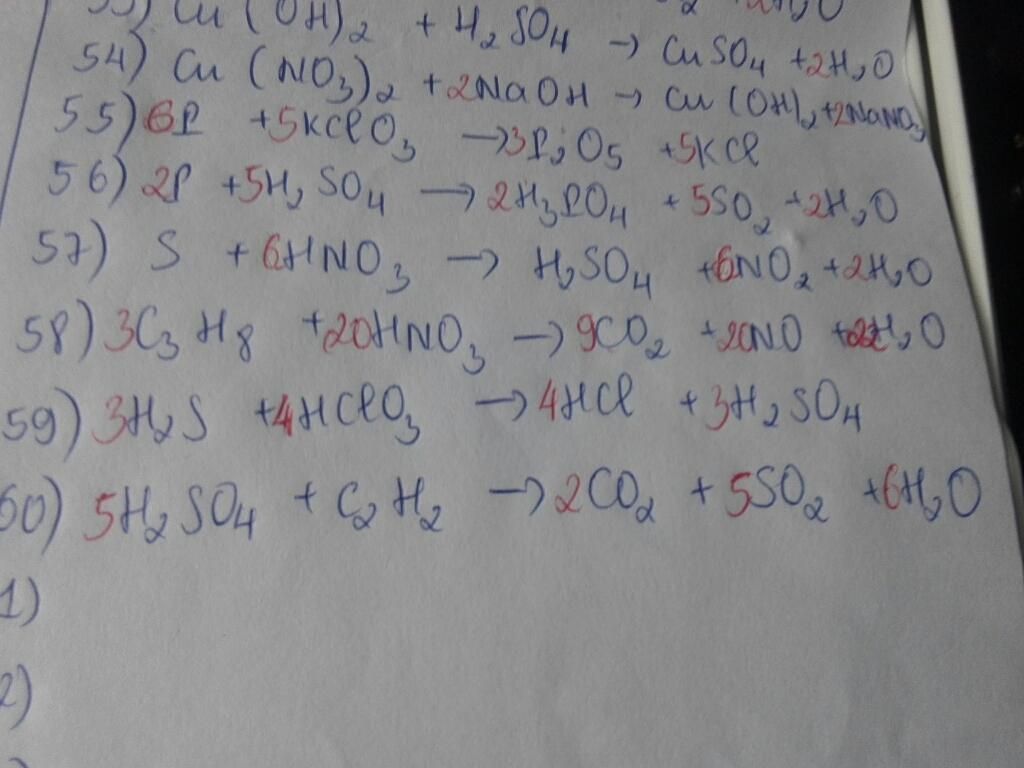 53) Cu(OH)₂ + H₂SO₄ → CuSO₄ + 2H₂O
54) Cu(NO₃)₂ + 2NaOH → Cu(OH)₂ + 2NaNO₃
55) 6P + 5KClO₃ → 3P₂O₅ + 5KCl
56) 2P + 5H₂SO₄ → 2H₃PO₄ + 5SO₂ + 2H₂O
57) S + 6HNO₃ → H₂SO₄ + 6NO₂ + 2H₂O
58) 3C₃H₈ + 20HNO₃ → 9CO₂ + 20NO + 22H₂O
59) 3H₂S + 4HClO₃ → 4HCl + 3H₂SO₄
60) 5H₂SO₄ + C₂H₂ → 2CO₂ + 5SO₂ + 6H₂O
1)
2)